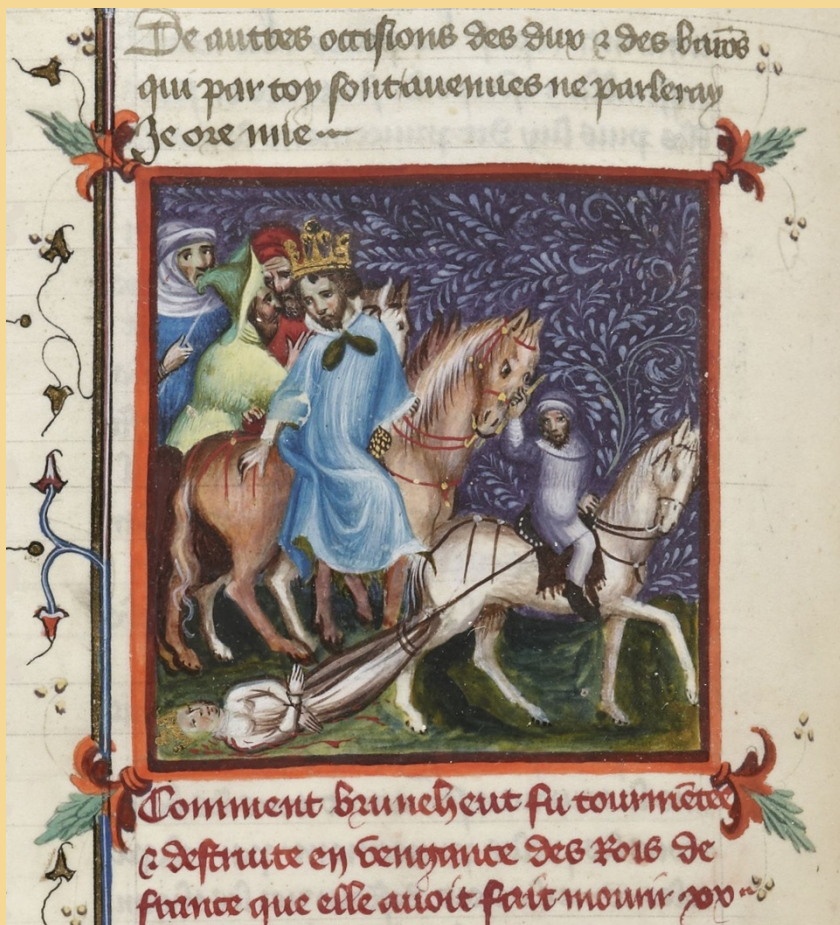 De autres occisions des dux ⁊ des barōs
qui par toy sont auenues ne parleray
Je ore mie
Comment bruneheut fu tourmētee
⁊ destruite en vengance des Rois de
france que elle auoit fait mourir xx